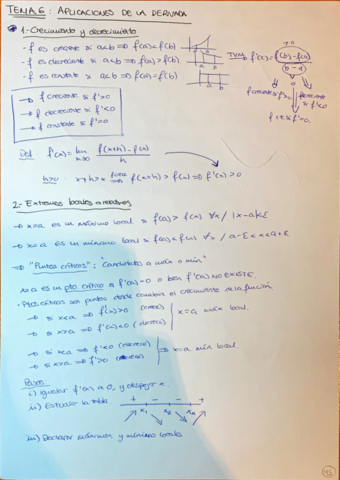 TEMA 6: APLICACIONES DE LA DERIVADA
1.- Crecimiento y decrecimiento
- f es creciente si a<b ⇒ f(a)<f(b)
- f es decreciente si a<b ⇒ f(a)>f(b)
- f es constante si a<b ⇒ f(a)=f(b)
TVM f'(c) = f(b)-f(a) / b-a
→ f creciente si f'>0
→ f decreciente si f'<0
→ f constante si f'=0
f'(x) = lim h→0 f(x+h)-f(x) / h
h>0 x+h>x ⇒ f(x+h)>f(x) ⇒ f'(x)>0
2.- Extremos locales o relativos
→ x=a es un máximo local si f(a)>f(x) ∀x / |x-a|<ε
→ x=a es un mínimo local si f(a)<f(x) ∀x / a-ε<x<a+ε
→ "Puntos críticos": "Candidatos a máx o mín"
x=a es un pto crítico si f'(a)=0 o bien f'(a) NO EXISTE.
· Ptos críticos son puntos donde cambia el crecimiento de la función
→ si x<a ⇒ f'(x)>0 (crece)
→ si x>a ⇒ f'(x)<0 (decrece)
x=a máx local.
→ si x<a ⇒ f'<0 (decrece)
→ si x>a ⇒ f'>0 (crece)
⇒ x=a mín local
Pasos:
i) Igualar f'(x) a 0, y despejar x.
ii) Estudiar la tabla.
+ - - +
x₁ x₂ x₃
iii) Declarar máximos y mínimos locales